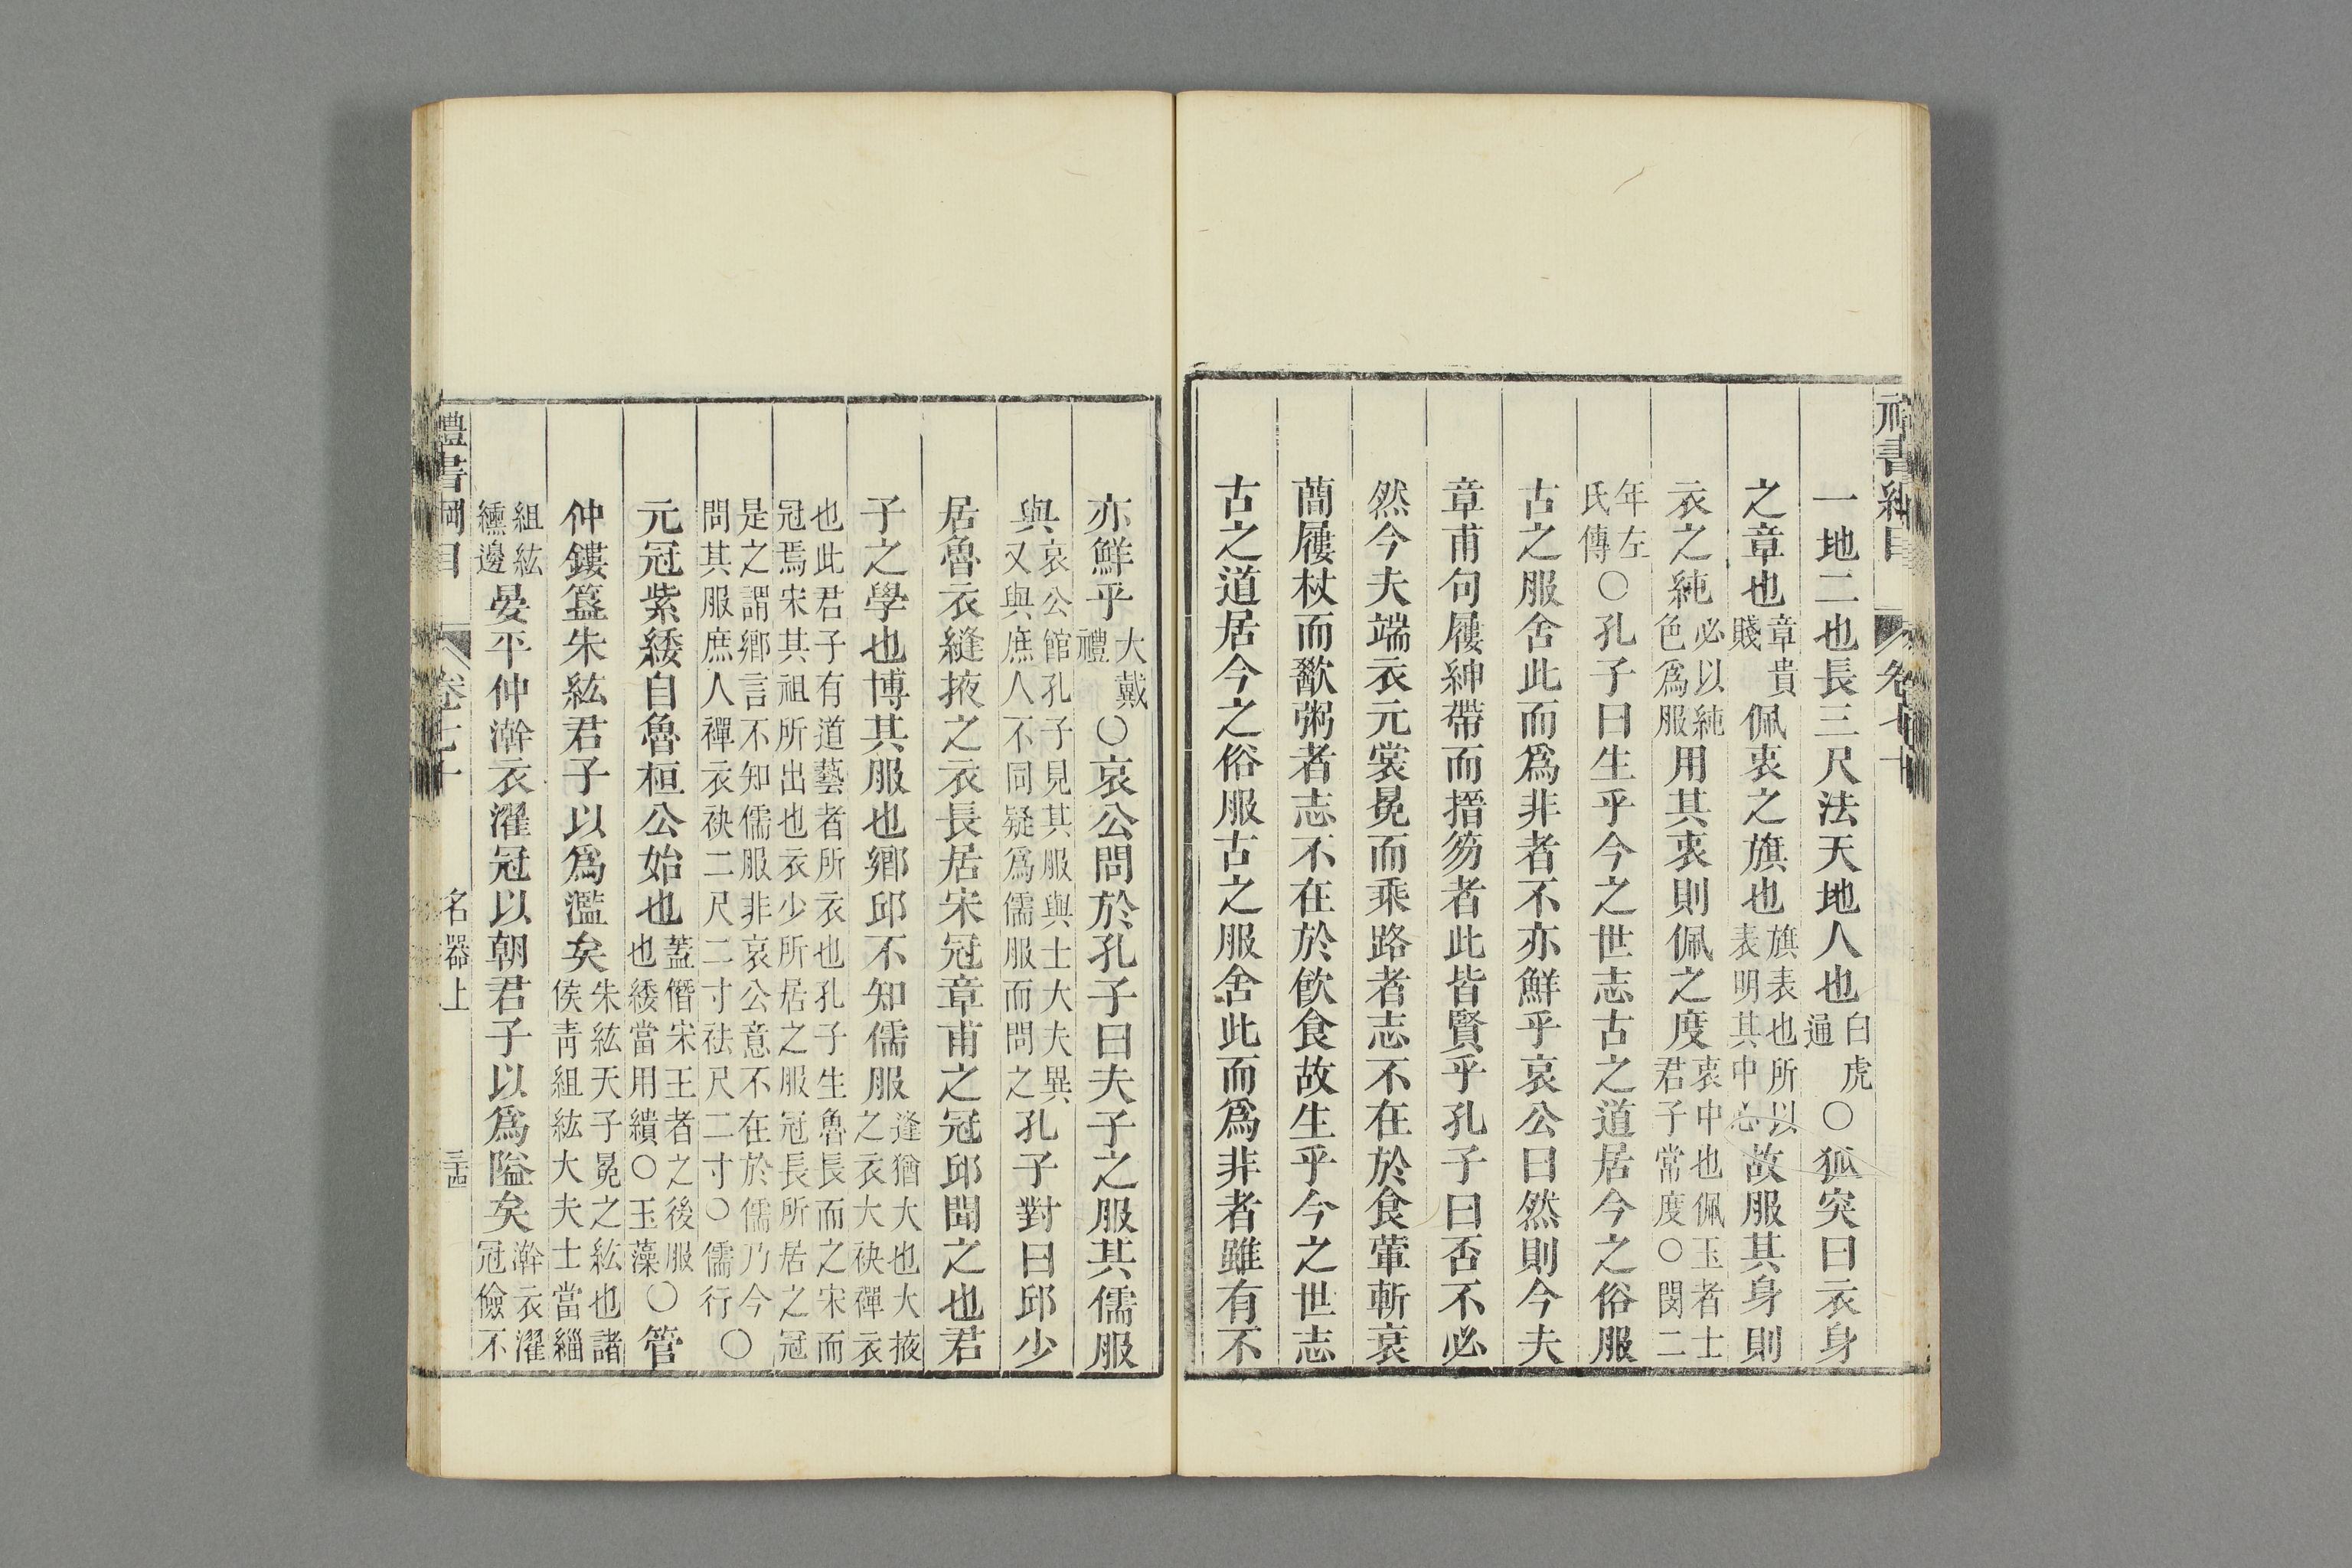 書 目 卷七十
一地二也長三尺法天地人也白虎通○狐突曰衣身
之章也章貴賤佩衷之旗也旗表也所以表明其中心故服其身則
衣之純必以純色爲服用其衷則佩之度衷中也佩玉者士君子常度○閔二
年左氏傳○孔子曰生乎今之世志古之道居今之俗服
古之服舍此而爲非者不亦鮮乎哀公曰然則今夫
章甫句屨紳帶而搢笏者此皆賢乎孔子曰否不必
然今夫端衣元裳冕而乘路者志不在於食葷斬衰
蕳屨杖而歠粥者志不在於飲食故生乎今之世志
古之道居今之俗服古之服舍此而爲非者雖有不
亦鮮乎大戴禮○哀公問於孔子曰夫子之服其儒服
與哀公館孔子見其服與士大夫異又與庶人不同疑爲儒服而問之孔子對曰邱少
居魯衣縫掖之衣長居宋冠章甫之冠邱聞之也君
子之學也博其服也鄉邱不知儒服逢猶大也大掖之衣大袂襌衣
也此君子有道藝者所衣也孔子生魯長而之宋而冠焉宋其祖所出也衣少所居之服冠長所居之冠
是之謂鄉言不知儒服非哀公意不在於儒乃今問其服庶人襌衣袂二尺二寸袪尺二寸○儒行○
元冠紫緌自魯桓公始也蓋僭宋王者之後服也緌當用繢○玉藻○管
仲鏤簋朱紘君子以爲濫矣朱紘天子冕之紘也諸侯青組紘大夫士當緇
組紘纁邊晏平仲澣衣濯冠以朝君子以爲隘矣澣衣濯冠儉不
禮書綱目 卷七十 名器上 三十四